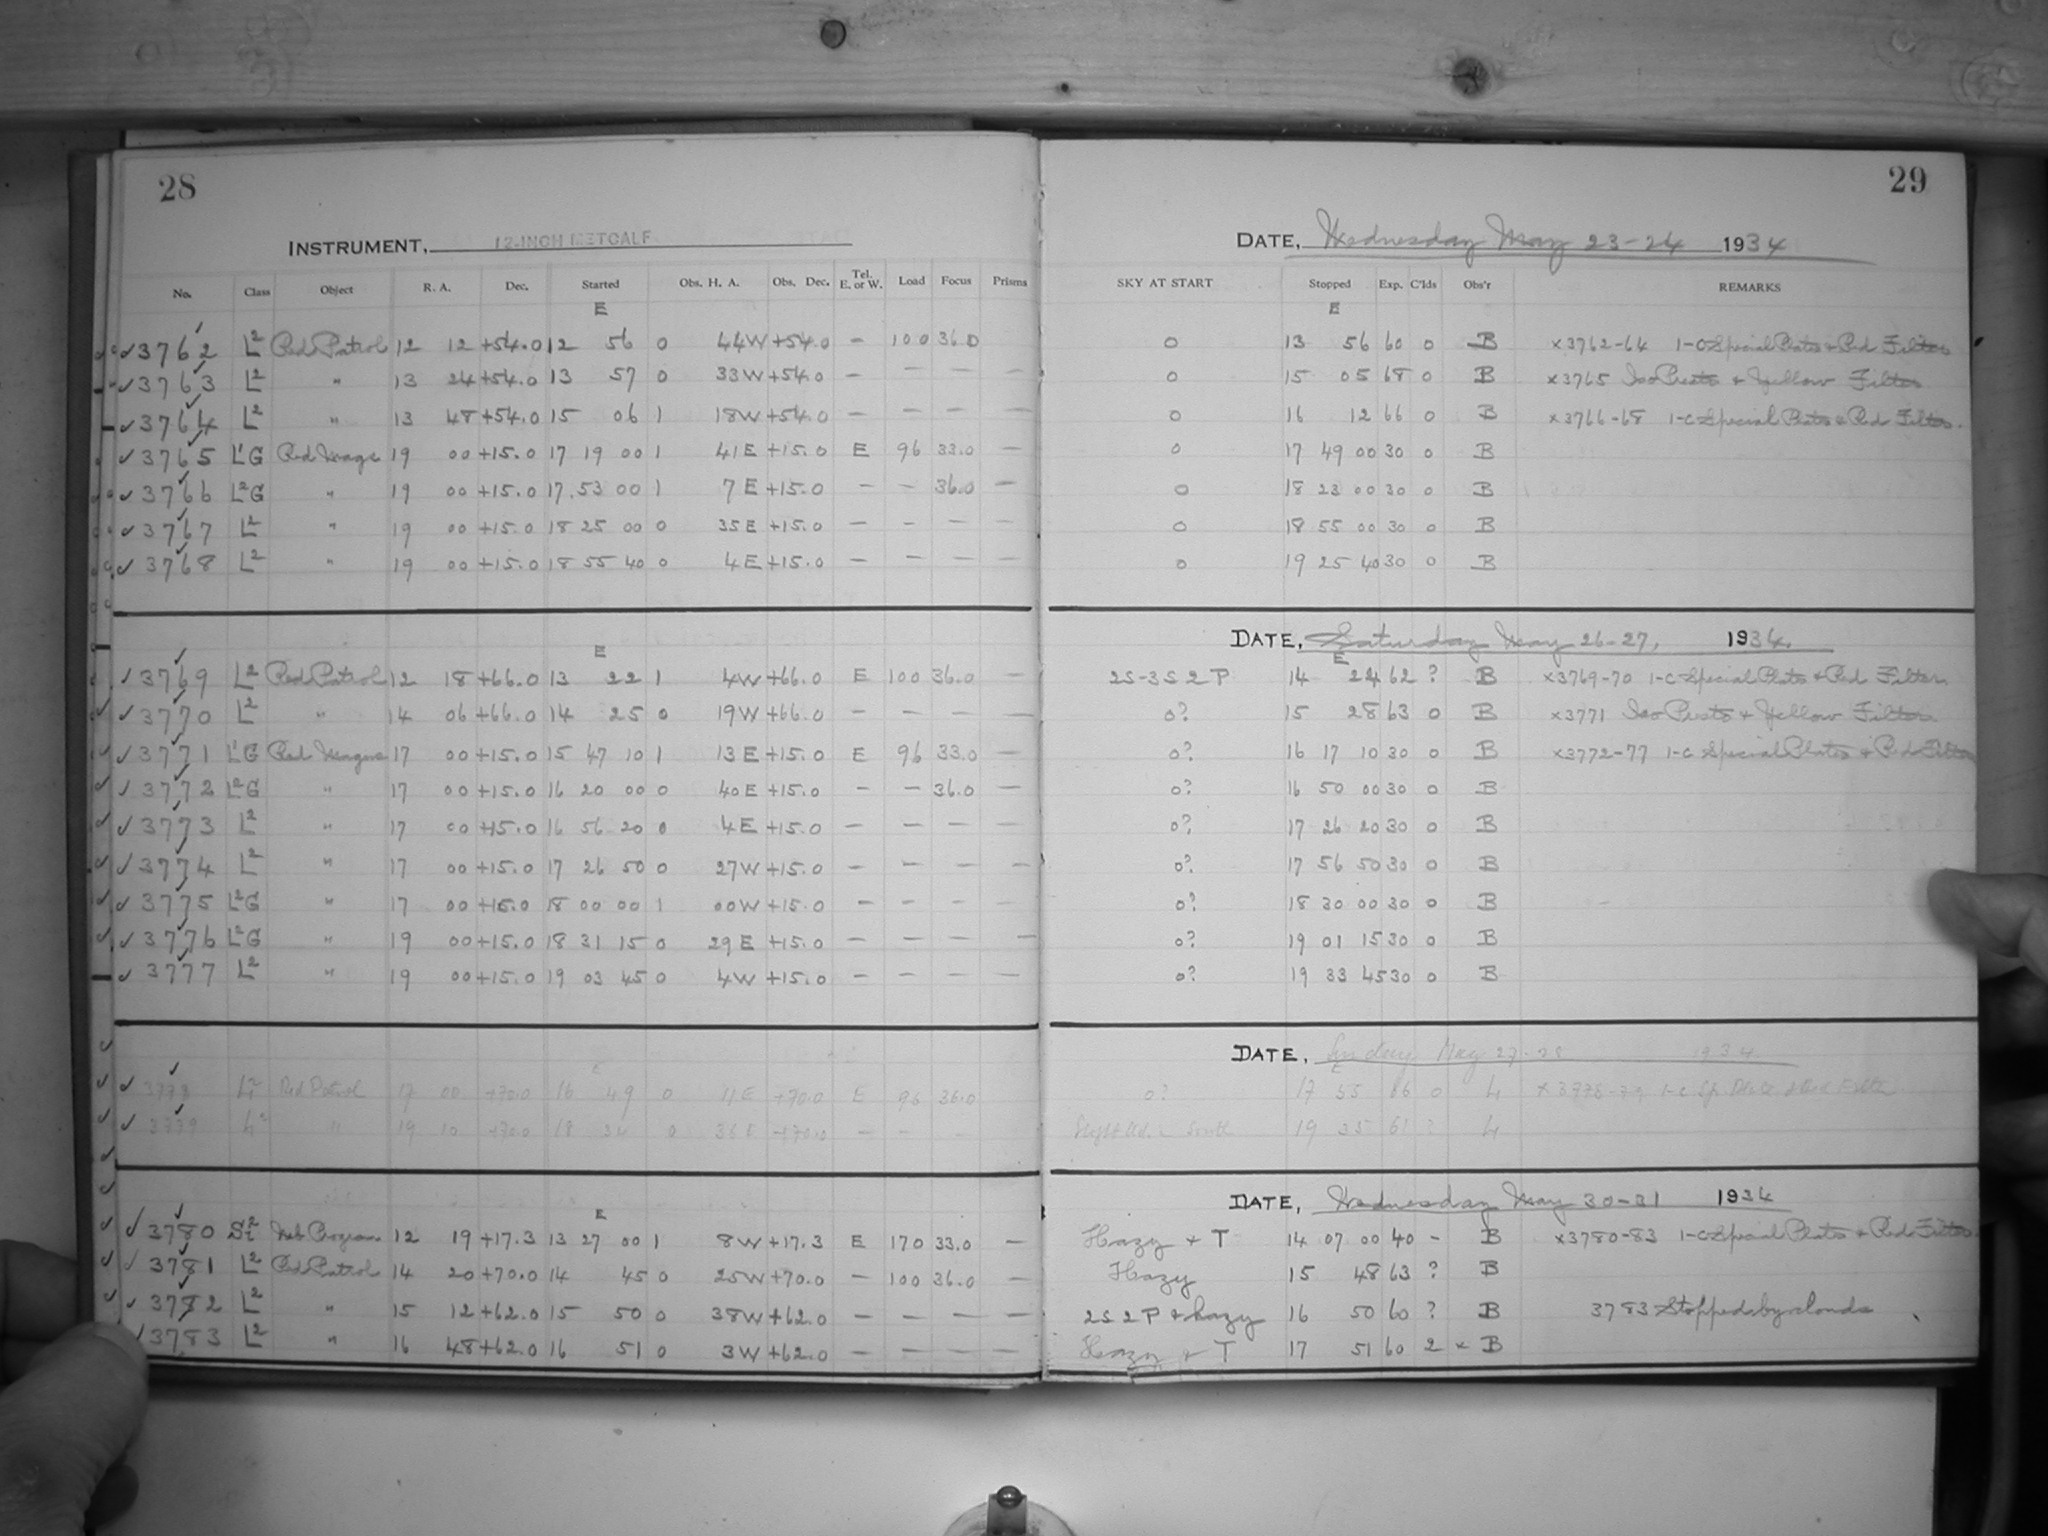 28
29
INSTRUMENT, 12-INCH METCALF
DATE, Wednesday May 23-24 1934
No. Class Object R. A. Dec. Started Obs. H. A. Obs. Dec. Tel. E. or W. Load Focus Prisms SKY AT START Stopped Exp. C'lds Obs'r REMARKS
E E
3762 L2 Red Patrol 12 12 +54.0 12 56 0 44W +54.0 — 100 36.0 0 13 56 60 0 B x3762-64 1-C Special Plates + Red Filter
3763 L2 " 13 24 +54.0 13 57 0 33W +54.0 — — — — 0 15 05 68 0 B x3765 Iso Presto + Yellow Filter
3764 L2 " 13 48 +54.0 15 06 1 18W +54.0 — — — — 0 16 12 66 0 B x3766-68 1-C Special Plates & Red Filter.
3765 L'G Red Image 19 00 +15.0 17 19 00 1 41E +15.0 E 96 33.0 — 0 17 49 00 30 0 B
3766 L2G " 19 00 +15.0 17.53 00 1 7E +15.0 — — 36.0 — 0 18 23 00 30 0 B
3767 L2 " 19 00 +15.0 18 25 00 0 35E +15.0 — — — — 0 18 55 00 30 0 B
3768 L2 " 19 00 +15.0 18 55 40 0 4E +15.0 — — — — 0 19 25 40 30 0 B
DATE, Saturday May 26-27, 1934.
E E
3769 L2 Red Patrol 12 18 +66.0 13 22 1 4W +66.0 E 100 36.0 — 2S-3S 2P 14 24 62 ? B x3769-70 1-C Special Plate + Red Filter
3770 L2 " 14 06 +66.0 14 25 0 19W +66.0 — — — — 0? 15 28 63 0 B x3771 Iso Presto + Yellow Filter
3771 L'G Red Images 17 00 +15.0 15 47 10 1 13E +15.0 E 96 33.0 — 0? 16 17 10 30 0 B x3772-77 1-C Special Plates + Red Filter
3772 L2G " 17 00 +15.0 16 20 00 0 40E +15.0 — — 36.0 — 0? 16 50 00 30 0 B
3773 L2 " 17 00 +15.0 16 56 20 0 4E +15.0 — — — — 0? 17 26 20 30 0 B
3774 L2 " 17 00 +15.0 17 26 50 0 27W +15.0 — — — — 0? 17 56 50 30 0 B
3775 L2G " 17 00 +15.0 18 00 00 1 00W +15.0 — — — — 0? 18 30 00 30 0 B
3776 L2G " 19 00 +15.0 18 31 15 0 29E +15.0 — — — — 0? 19 01 15 30 0 B
3777 L2 " 19 00 +15.0 19 03 45 0 4W +15.0 — — — — 0? 19 33 45 30 0 B
DATE, Sunday May 27-28 1934
E E
3778 L2 Red Patrol 17 00 +70.0 16 49 0 11E +70.0 E 96 36.0 0? 17 55 66 0 L x3778-79 1-C Sp. Plate + Red Filter
3779 L2 " 19 10 +70.0 18 34 0 36E +70.0 — — — Slight South 19 35 61 ? L
DATE, Wednesday May 30-31 1934
E
3780 Neb Program 12 19 +17.3 13 27 00 1 8W +17.3 E 170 33.0 — Hazy + T 14 07 00 40 - B x3780-83 1-C Special Plates + Red Filter.
3781 L2 Red Patrol 14 20 +70.0 14 45 0 25W +70.0 — 100 36.0 — Hazy 15 48 63 ? B
3782 L2 " 15 12 +62.0 15 50 0 38W +62.0 — — — — 2S 2P & hazy 16 50 60 ? B 3783 Stopped by clouds
3783 L2 " 16 48 +62.0 16 51 0 3W +62.0 — — — — Hazy + T 17 51 60 2 x B